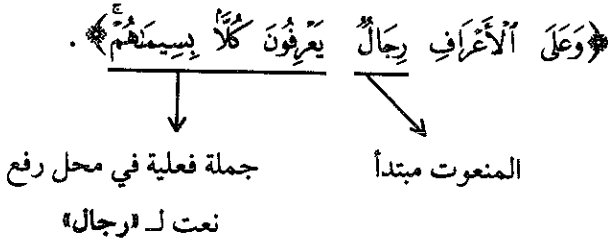 ﴿وَعَلَى ٱلْأَعْرَافِ رِجَالٌ يَعْرِفُونَ كُلًّا بِسِيمَىٰهُمْۚ﴾ .
المنعوت مبتدأ
جملة فعلية في محل رفع
نعت لـ «رجال»